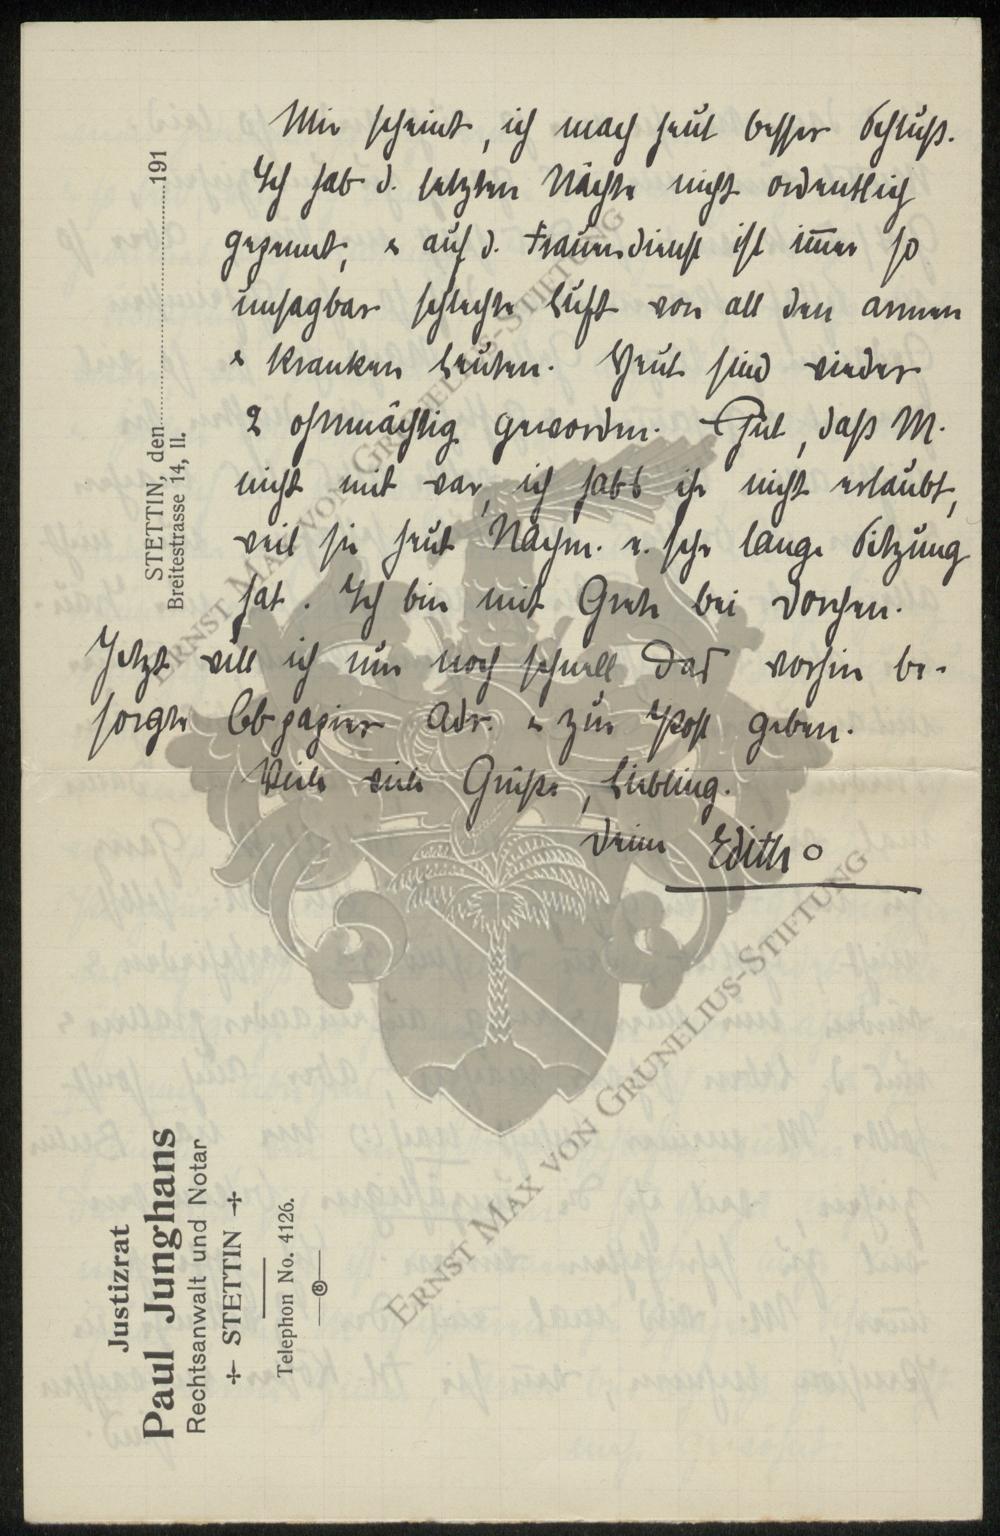 Mir scheint, ich mach heut besser Schluß.
Ich hab d. letzten Nächte nicht ordentlich
gepennt, & auf d. Frauendienst ist im̅er so
unsagbar schlechte Luft von all den armen
& kranken Leuten. Heut sind wieder
2 ohnmächtig geworden. Gut, daß M.
nicht mit war, ich habs ihr nicht erlaubt,
weil sie heut Nachm. e. sehr lange Sitzung
hat. Ich bin mit Grete bei Dorchen.
Jetzt will ich nur noch schnell das vorhin be-
sorgte Cbpapier adr. & zur Post geben.
Viele viele Grüße, Liebling.
Deine Edith
STETTIN, den 191
Breitestrasse 14, II.
Justizrat
Paul Junghans
Rechtsanwalt und Notar
STETTIN
Telephon No. 4126.
ERNST MAX VON GRUNELIUS-STIFTUNG
ERNST MAX VON GRUNELIUS-STIFTUNG